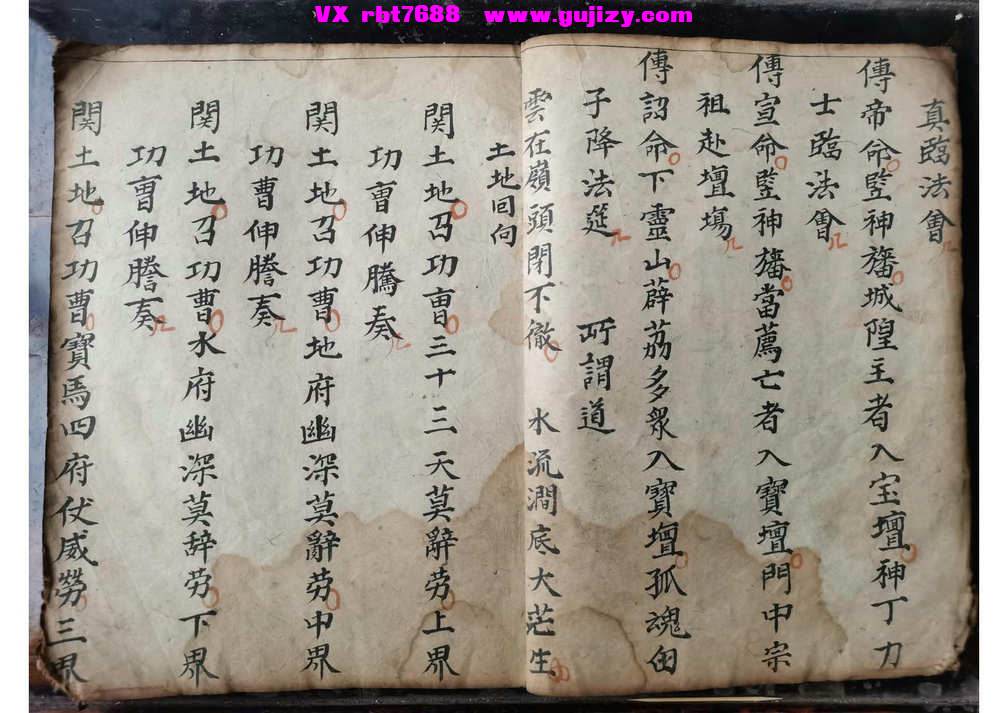 VX rbt7688 www.gujizy.com
真臨法會
傳帝命監神旛城隍主者入宝壇神丁力
士臨法會
傳宣命監神旛當薦亡者入寶壇門中宗
祖赴壇塲
傳詔命下靈山薜荔多衆入寶壇孤魂由
子降法筵 所謂道
雲在嶺頭閉不徹 水流澗底大茫生
土地回向
関土地召功曺三十三天莫辭劳上界
功曺伸騰奏
関土地召功曹地府幽深莫辭劳中界
功曹伸謄奏
関土地召功曹水府幽深莫辞劳下界
功曺伸謄奏
関土地召功曹寶馬四府伏威勞三界